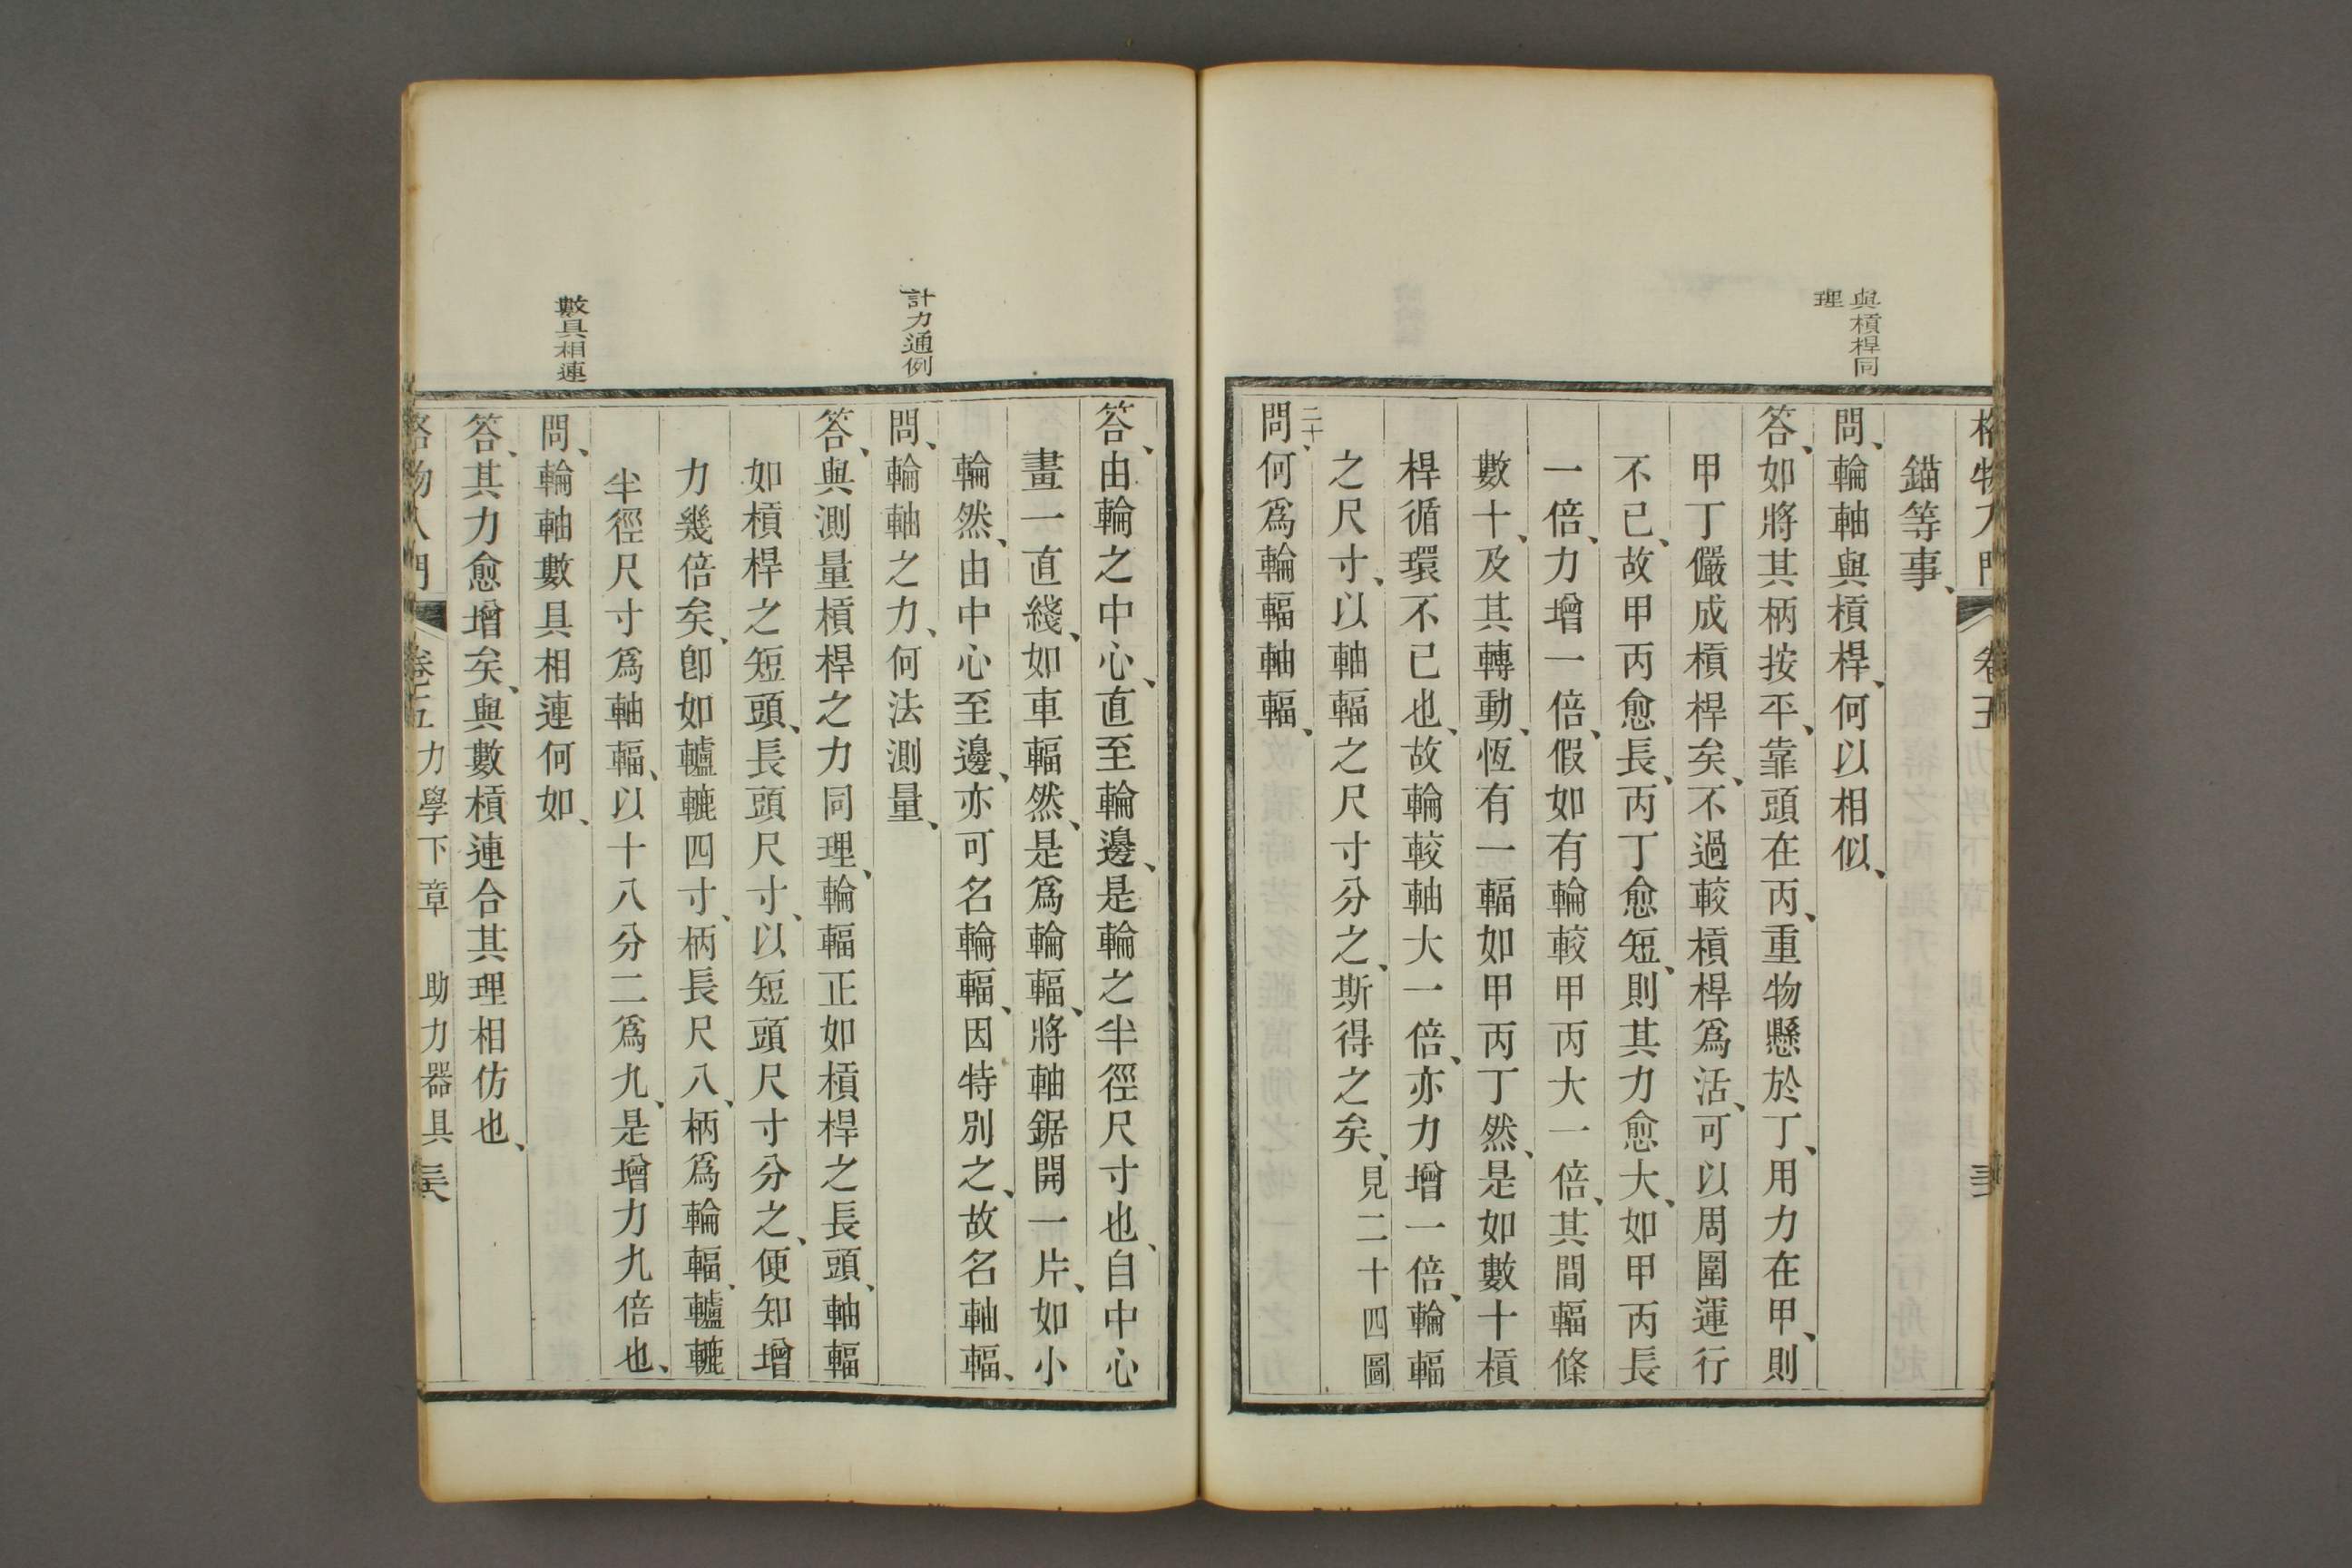 格物入門 卷五
與槓桿同
理
錨等事、
問、輪軸與槓桿、何以相似、
答、如將其柄按平、靠頭在丙、重物懸於丁、用力在甲、則
甲丁儼成槓桿矣、不過較槓桿爲活、可以周圍運行
不已、故甲丙愈長、丙丁愈短、則其力愈大、如甲丙長
一倍、力增一倍、假如有輪較甲丙大一倍、其間輻條
數十、及其轉動、恆有一輻如甲丙丁然、是如數十槓
桿循環不已也、故輪較軸大一倍、亦力增一倍、輪輻
之尺寸、以軸輻之尺寸分之、斯得之矣、見二十四圖
二十
問、何爲輪輻軸輻、
答、由輪之中心、直至輪邊、是輪之半徑尺寸也、自中心
畫一直綫、如車輻然、是爲輪輻、將軸鋸開一片、如小
輪然、由中心至邊、亦可名輪輻、因特別之、故名軸輻、
計力通例
問、輪軸之力、何法測量、
答、與測量槓桿之力同理、輪輻正如槓桿之長頭、軸輻
如槓桿之短頭、長頭尺寸、以短頭尺寸分之、便知增
力幾倍矣、卽如轤轆四寸、柄長尺八、柄爲輪輻、轤轆
半徑尺寸爲軸輻、以十八分二爲九、是增力九倍也、
數具相連
問、輪軸數具相連何如、
答、其力愈增矣、與數槓連合其理相仿也、
格物入門 卷五 力學下章 助力器具 三十八